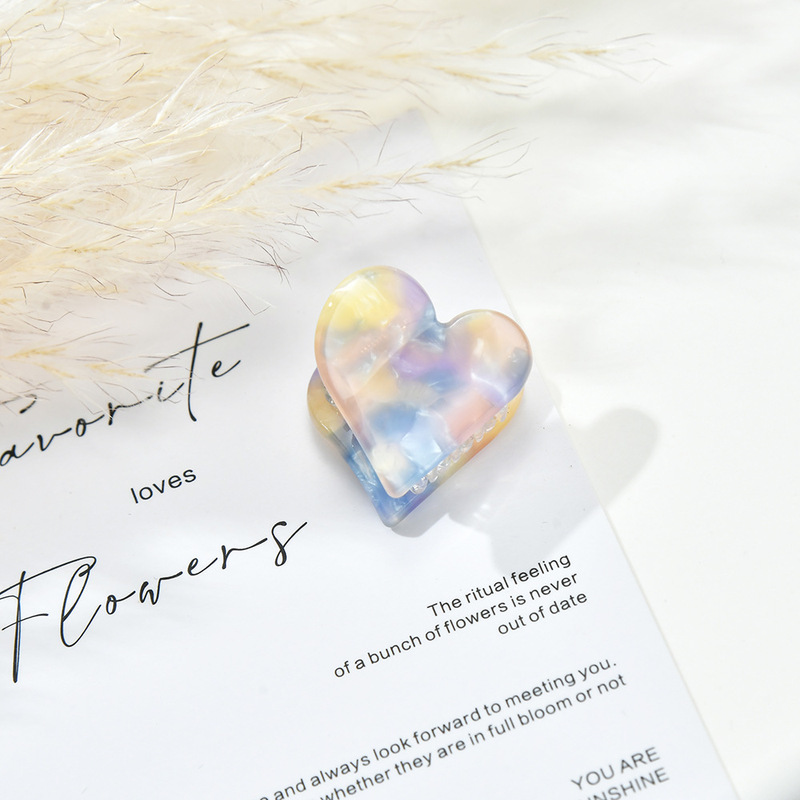 avorite
loves
Flowers
The ritual feeling
of a bunch of flowers is never
out of date
and always look forward to meeting you.
whether they are in full bloom or not
YOU ARE
NSHINE